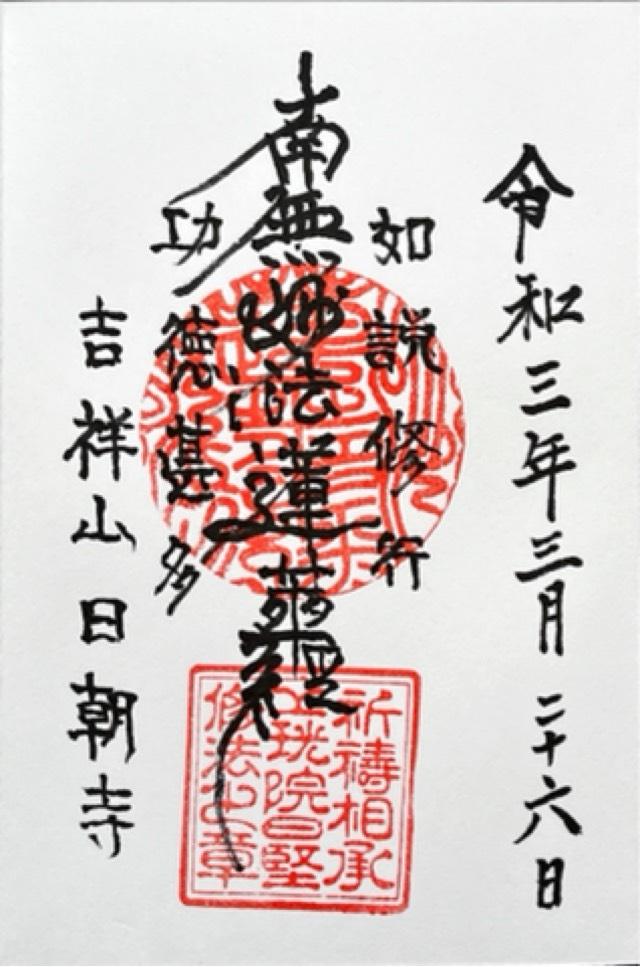 令和三年三月二十六日
如説修行
南無妙法蓮華經
功徳甚多
吉祥山日朝寺
祈祷相承
玉珖院日堅
修法之章